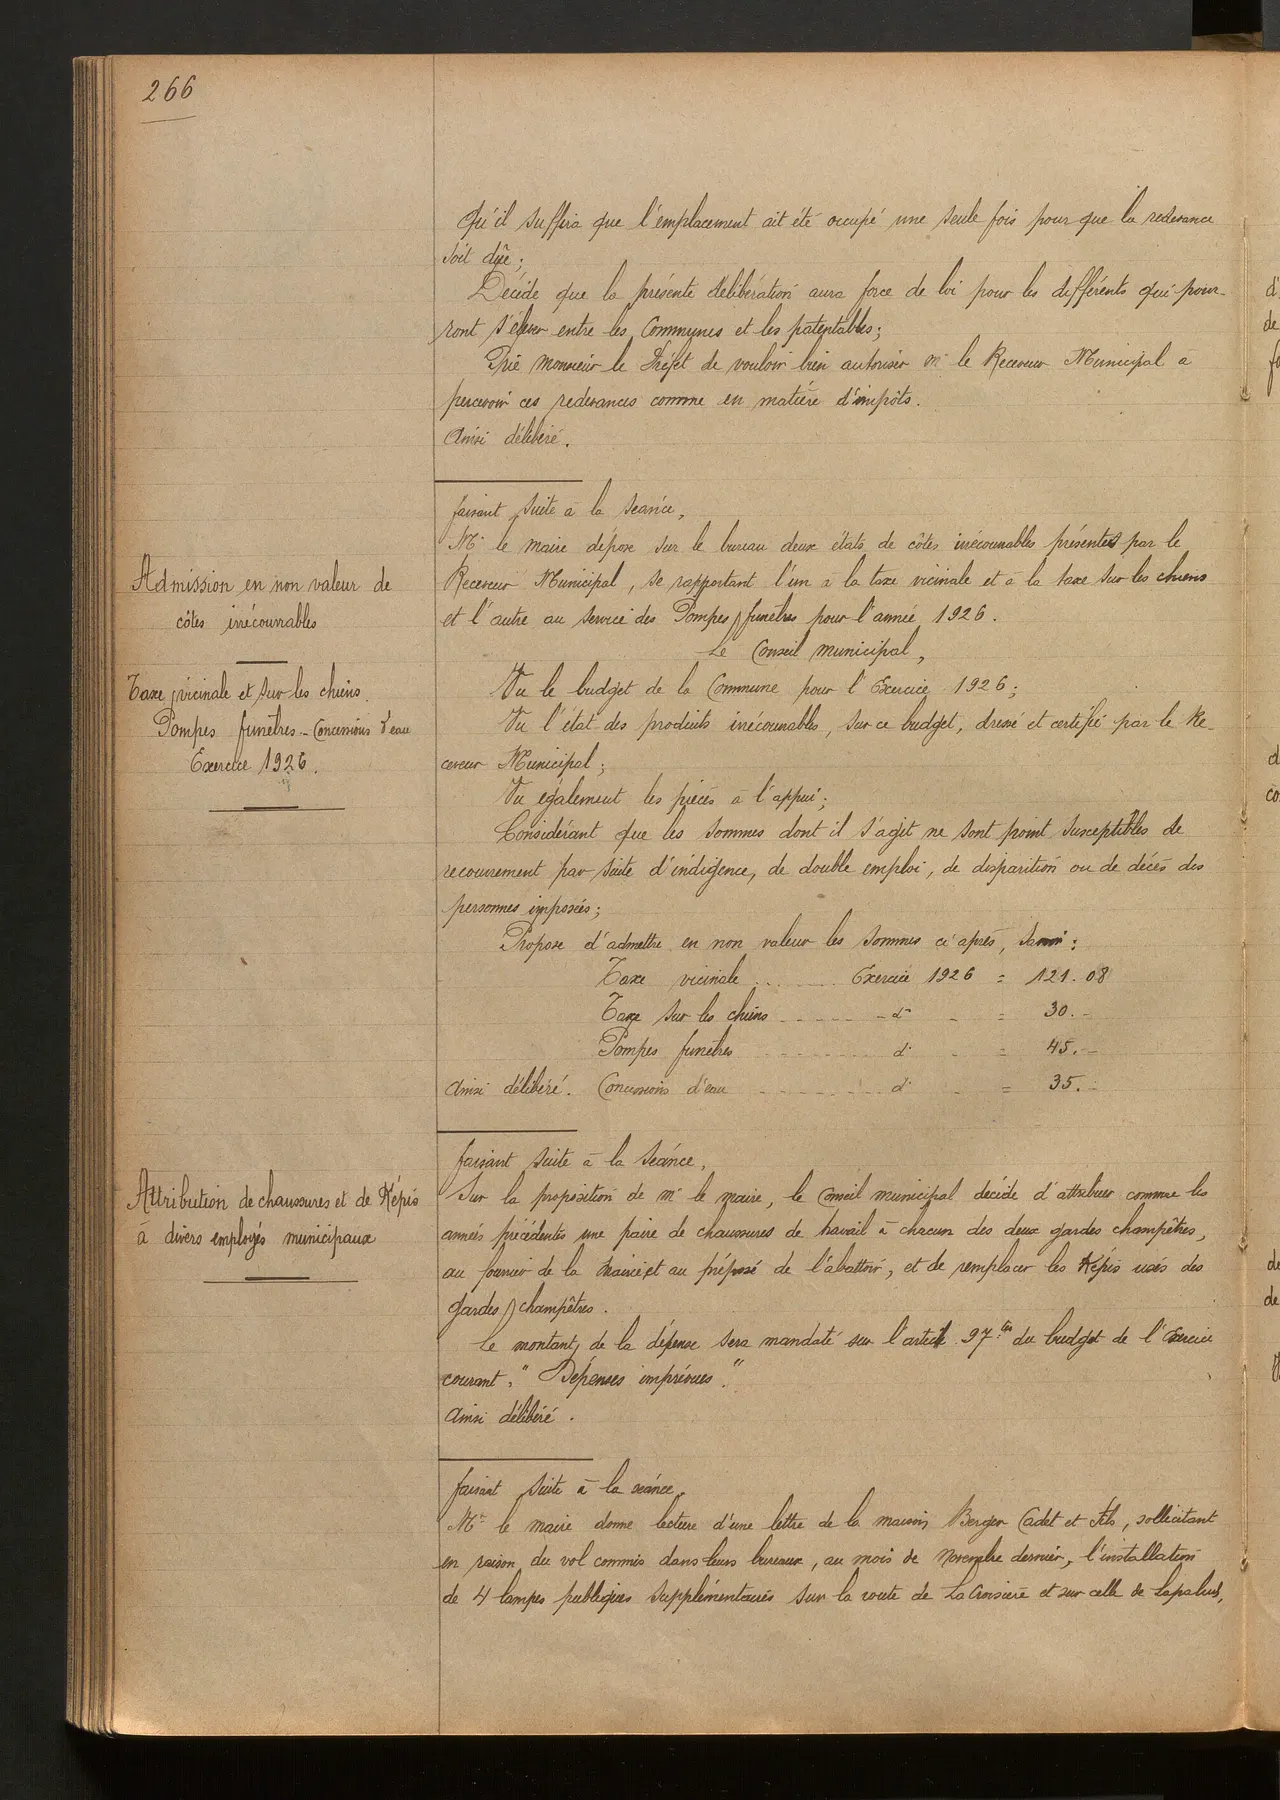 266
Qu'il suffira que l'emplacement ait été occupé une seule fois pour que la redevance
soit dûe ;
Décide que la présente délibération aura force de loi pour les différents qui pour-
ront s'élever entre les Communes et les patentables ;
Prie monsieur le Préfet de vouloir bien autoriser Mr le Receveur Municipal a
percevoir ces redevances comme en matière d'impôts.
Ainsi délibéré.
faisant suite à la séance,
Admission en non valeur de
côtes irrécouvrables
Taxe vicinale et sur les chiens.
Pompes funèbres - Concessions d'eau
Exercice 1926.
Mr le maire dépose sur le bureau deux états de côtes irrécouvrables présentés par le
Receveur Municipal, se rapportant l'un à la taxe vicinale et à la taxe sur les chiens
et l'autre au service des Pompes funèbres pour l'année 1926.
Le Conseil municipal,
Vu le budget de la Commune pour l'Exercice 1926 ;
Vu l'état des produits irrécouvrables, sur ce budget, dressé et certifié par le Re-
ceveur Municipal ;
Vu également les pièces à l'appui ;
Considérant que les sommes dont il s'agit ne sont point susceptibles de
recouvrement par suite d'indigence, de double emploi, de disparition ou de décès des
personnes imposées ;
Propose d'admettre en non valeur les sommes ci après, savoir :
Taxe vicinale ........ Exercice 1926 = 121.08
Taxe sur les chiens ...... d° - = 30.-
Pompes funèbres ........ d° - = 45.-
Ainsi délibéré. Concessions d'eau ........ d° - = 35.-
faisant suite à la séance,
Attribution de chaussures et de Képis
à divers employés municipaux
Sur la proposition de Mr le maire, le Conseil municipal décide d'attribuer comme les
années précédentes une paire de chaussures de travail à chacun des deux gardes champêtres,
au fourrier de la mairie et au préposé de l'abattoir, et de remplacer les Képis usés des
gardes champêtres.
Le montant de la dépense sera mandaté sur l'article 97 ter du budget de l'Exercice
courant, "Dépenses imprévues".
Ainsi délibéré.
faisant suite à la séance,
Mr le maire donne lecture d'une lettre de la maison Berger Cadet et Fils, sollicitant
en raison du vol commis dans leurs bureaux, au mois de novembre dernier, l'installation
de 4 lampes publiques supplémentaires sur la route de La Croisière et sur celle de Lapalud,